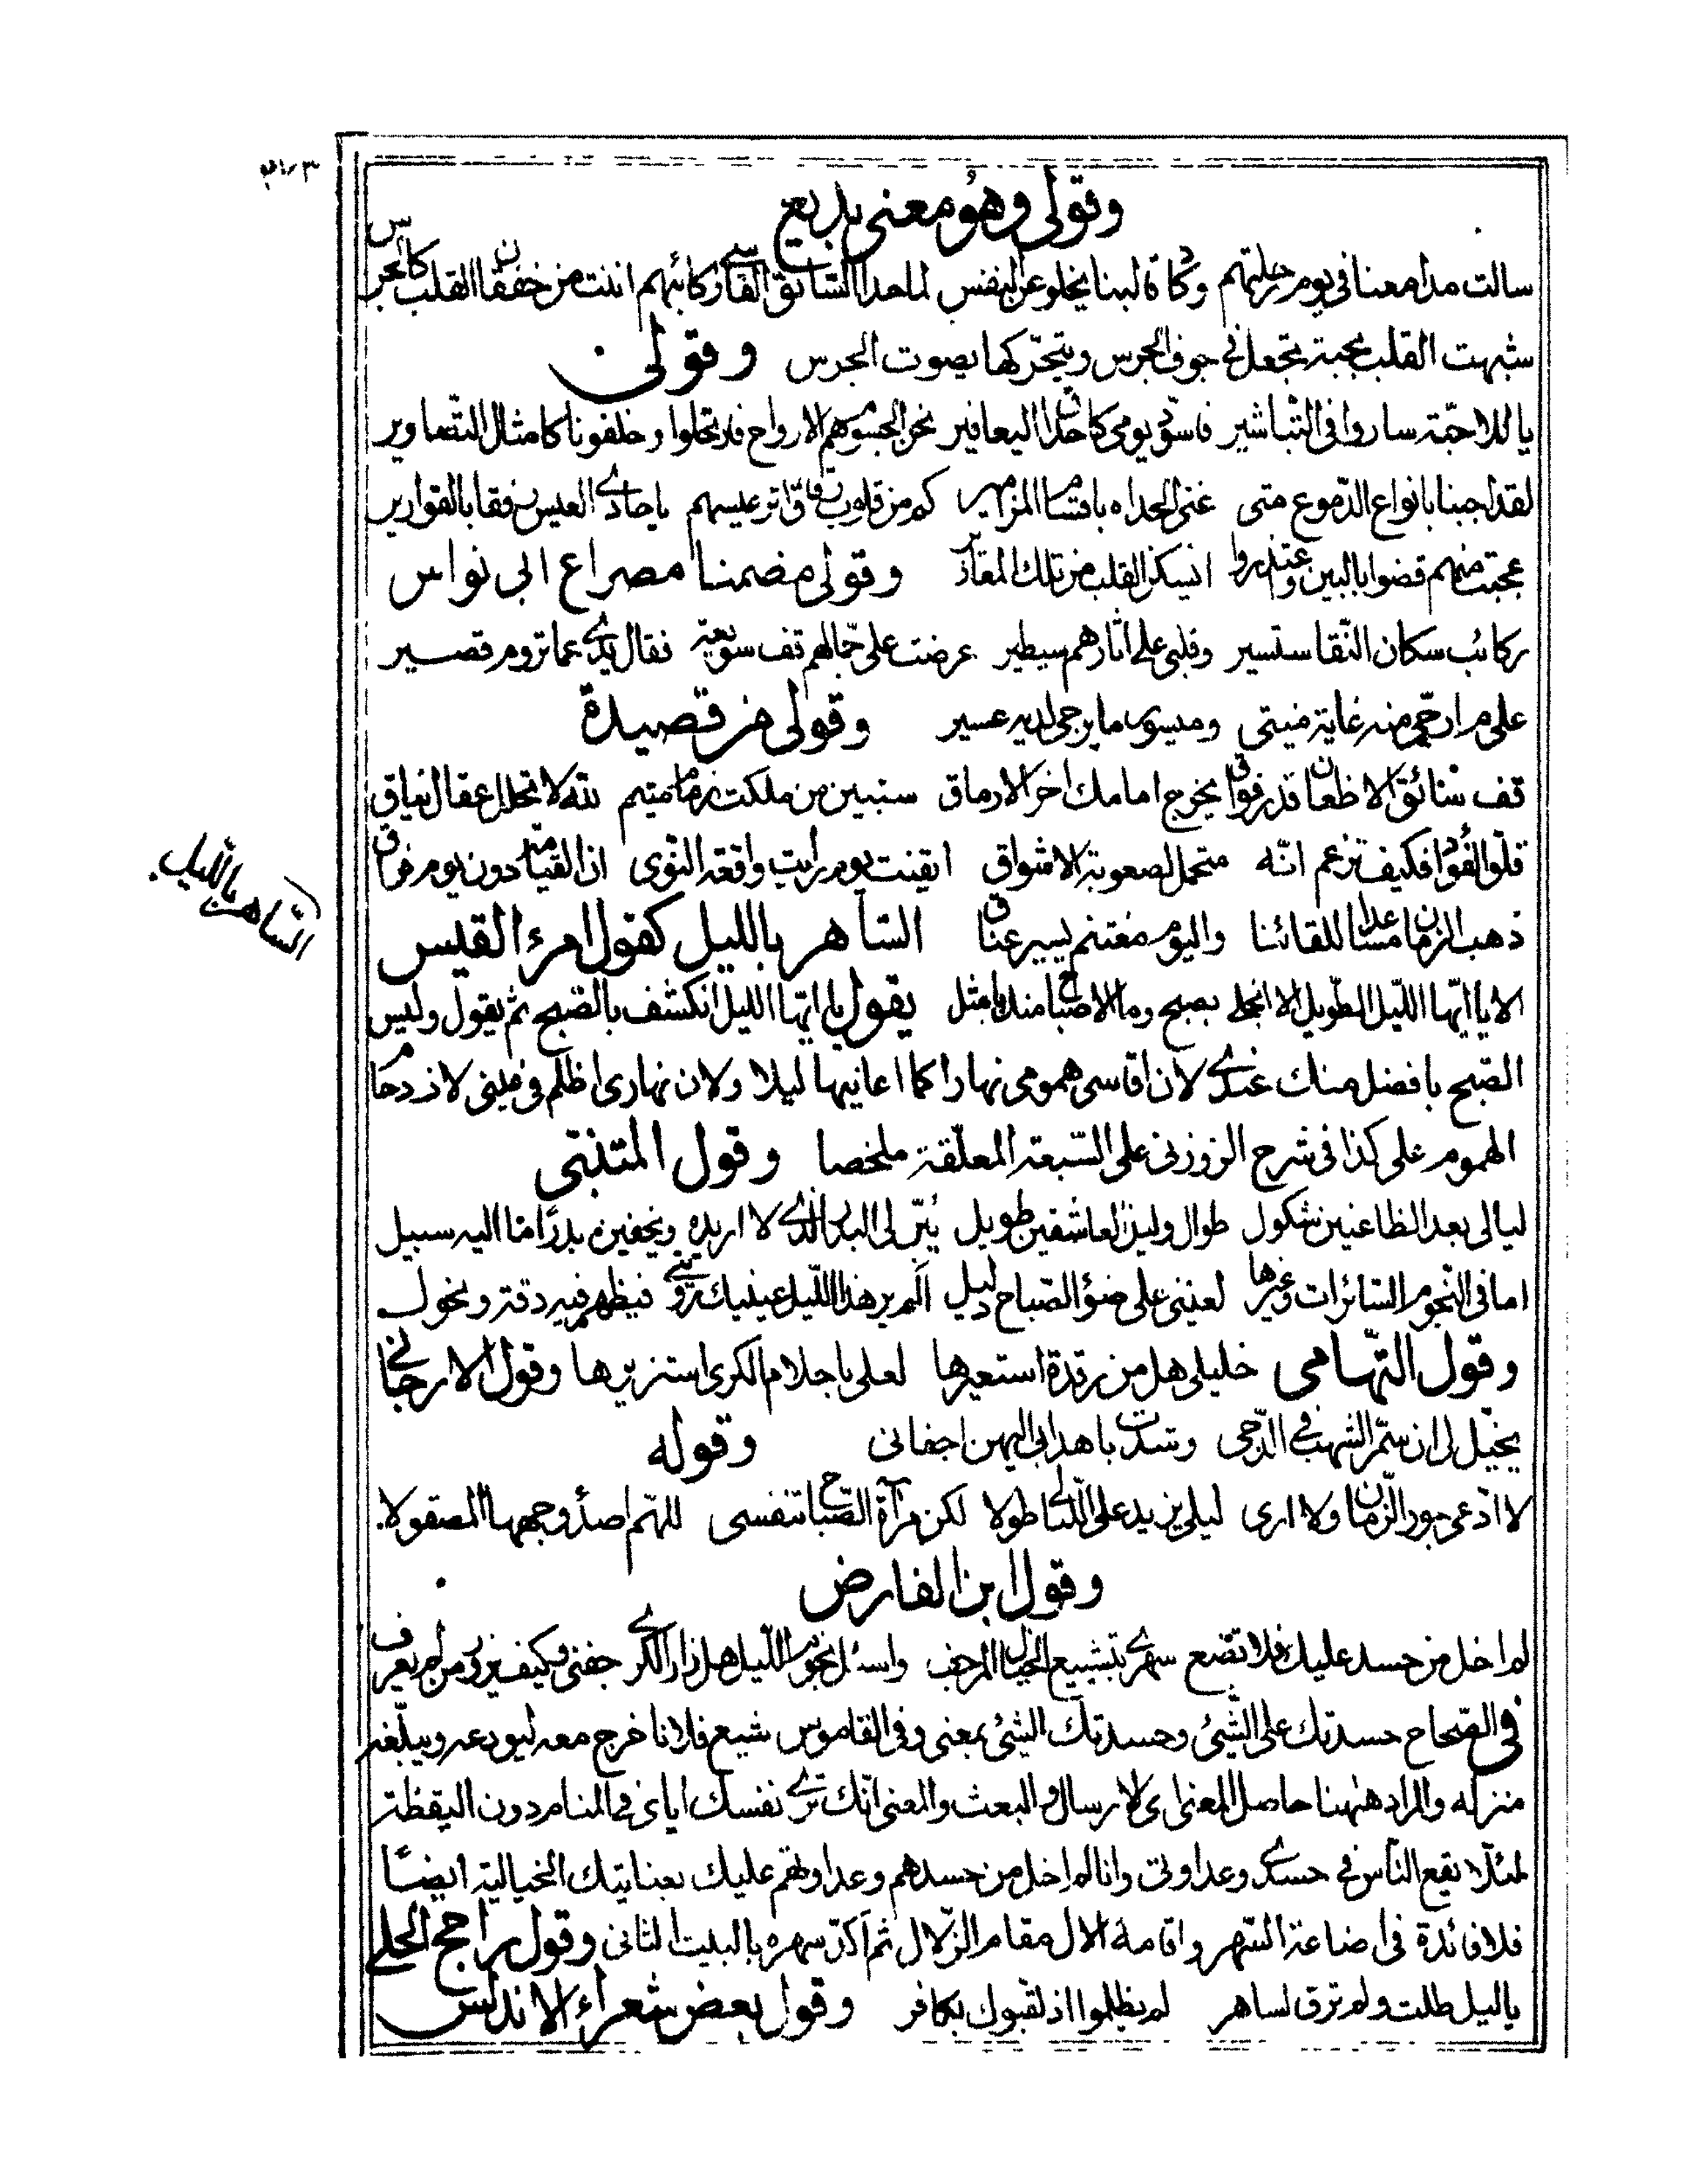 وقولى وهُو معنى بديع
سالت مدامعنا فى يوم رحلتهم وكاد قالبنا يخلو عن النفس لما حدا السّائق القاسى ركائبهم اننت من خفقان القلب كالجرس
شبهت القلب بحبة تجعل فى جوف الجرس ويتحرّكها يصوت الجرس وقولى
يا للاحبّة ساروا فى التّباشير فاسوّد يومى كاحداق اليعافير نحن الجسوم هم الارواح قد رتحلوا وخلفونا كامثال التّصاوير
لقد اجبنا بانواع الدّموع متى غنى الحداه باقسام المزامير كم من قلوب رقاق اثر عيسهم ياحادى العيس رفقا بالقوارير
عجبت منهم قضوا بالبين واعتذروا اليسكن القلب من تلك المعاذير وقولى مضمنا مصراع ابى نواس
ركائب سكان النّقا ستسير وقلبى على اثارهم سيطير عرضت على جمالهم قف سويعة فقال يدى عما تروم قصير
على مرارحّى منه غاية منيتى وميسور ما يرجى لديه عسير وقولى من قصيدة
قف سائق الاظعان قدر فواق يخرج امامك اخر الارماق ستبين من ملكت زمام متيم لله لا تحلل عقال نياق
قلو الفؤاد فكيف تزعم انّه متحمل لصعوبة الاشواق ايقنت يوم رايت واقعة النّوى ان القيامة دون يوم فراق
ذهب الزمان مساعدا للقائنا واليوم مغتنم يسير عناق السّاهر بالليل كقول امرء القيس
الا يا ايّها اللّيل الطّويل الا انجلى بصبح وما الاصباح منك بامثل يقول يا ايّها الليل انكشف بالصّبح ثم يقول وليس
الصّبح بافضل منك عندى لان اقاسى همومى نهارا كما اعانيها ليلا ولان نهارى اظلم فى عينى لازدحام
الهموم على كذا فى شرح الزوزنى على السّبعة المعلّقة ملخصا وقول المتنبّى
ليالى بعد الظاعنين شكول طوال وليل العاشقين طويل يُبنّ لى البدر الذى لا اريده ويخفين بدرًا ما اليه سبيل
اما فى النّجوم السّائرات وغيرها لعينى على ضوء الصّباح دليل ألم ير هذا اللّيل عينيك رؤيتى فيظهر فيه دقة ونحول
وقول التّهامى خليلى هل من رقدة استعيرها لعلى باحلام الكرى استزيرها وقول الارجانى
يخيّل لى ان سمّر الشهب فى الدّجى وشدت باهدابى اليهن اجفانى وقوله
لا ادّعى جور الزّمان ولا ارى ليلى يزيد على اللّيالى طولا لكن مرآة الصّباح تنفسى للهّم اصدأ وجهها المصقولا
وقول ابن الفارض
لم اخل من حسد عليك فلا تضع سهرى بتشييع الخيال المرجف واسئل نجوم اللّيل هل زار الكرى جفنى وكيف يزور من لم يعرف
فى الصّحاح حسدتك على الشّئ وحسدتك الشئى بمعنى وفى القاموس شيع فلانا خرج معه ليودعه ويبلّغه
منزله والمراد ههنا حاصل المعنى اى الارسال والبعث والمعنى انّك ترى نفسك اياى فى المنام دون اليقظة
لئلّا يقع النّاس فى حسدى وعداوتى وانا لم اخل من حسدهم وعداوتهم عليك بعنايتك الخيالية ايضًا
فلا فائدة فى اضاعة السّهر واقامة الال مقام الزّلال ثم اكدّ سهره بالبيت الثانى وقول راجح الحلى
ياليل طلت ولم ترق لساهر لم يظلموا اذ لقبوك بكافر وقول بعض شعراء الاندلس
السّاهر باللّيل